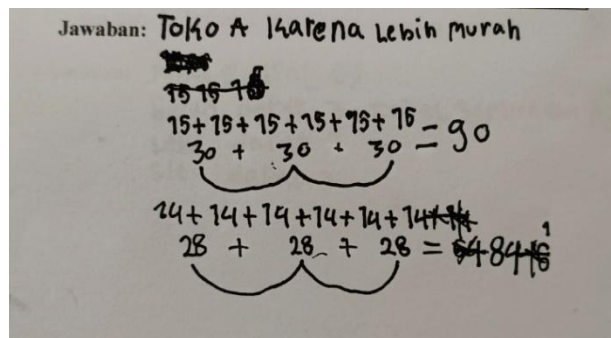 Jawaban: Toko A Karena Lebih murah
15 15 15
15+15+15+15+15+15 = 90
30 + 30 + 30
14+14+14+14+14+14
28 + 28 + 28 = 84